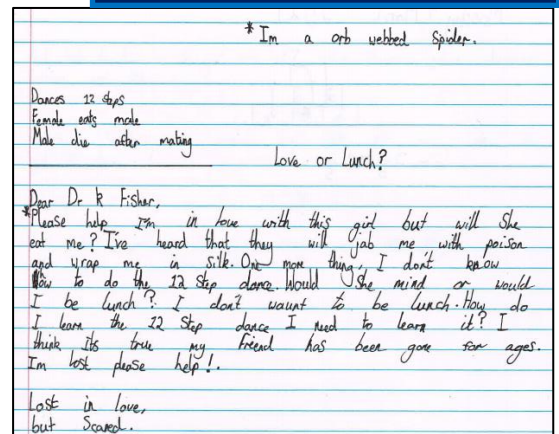 * Im a orb webbed Spider.
Dances 12 steps
Female eats male
Male die after mating
Love or Lunch?
Dear Dr R Fisher,
*Please help I'm in love with this girl but will She
eat me? I've heard that they will jab me with poison
and wrap me in silk. One more thing, I don't know
how to do the 12 step dance. Would She mind or would
I be lunch? I don't waunt to be lunch. How do
I learn the 12 Step dance I need to learn it? I
think its true my friend has been gone for ages.
Im lost please help!.
Lost in love,
but Scared.